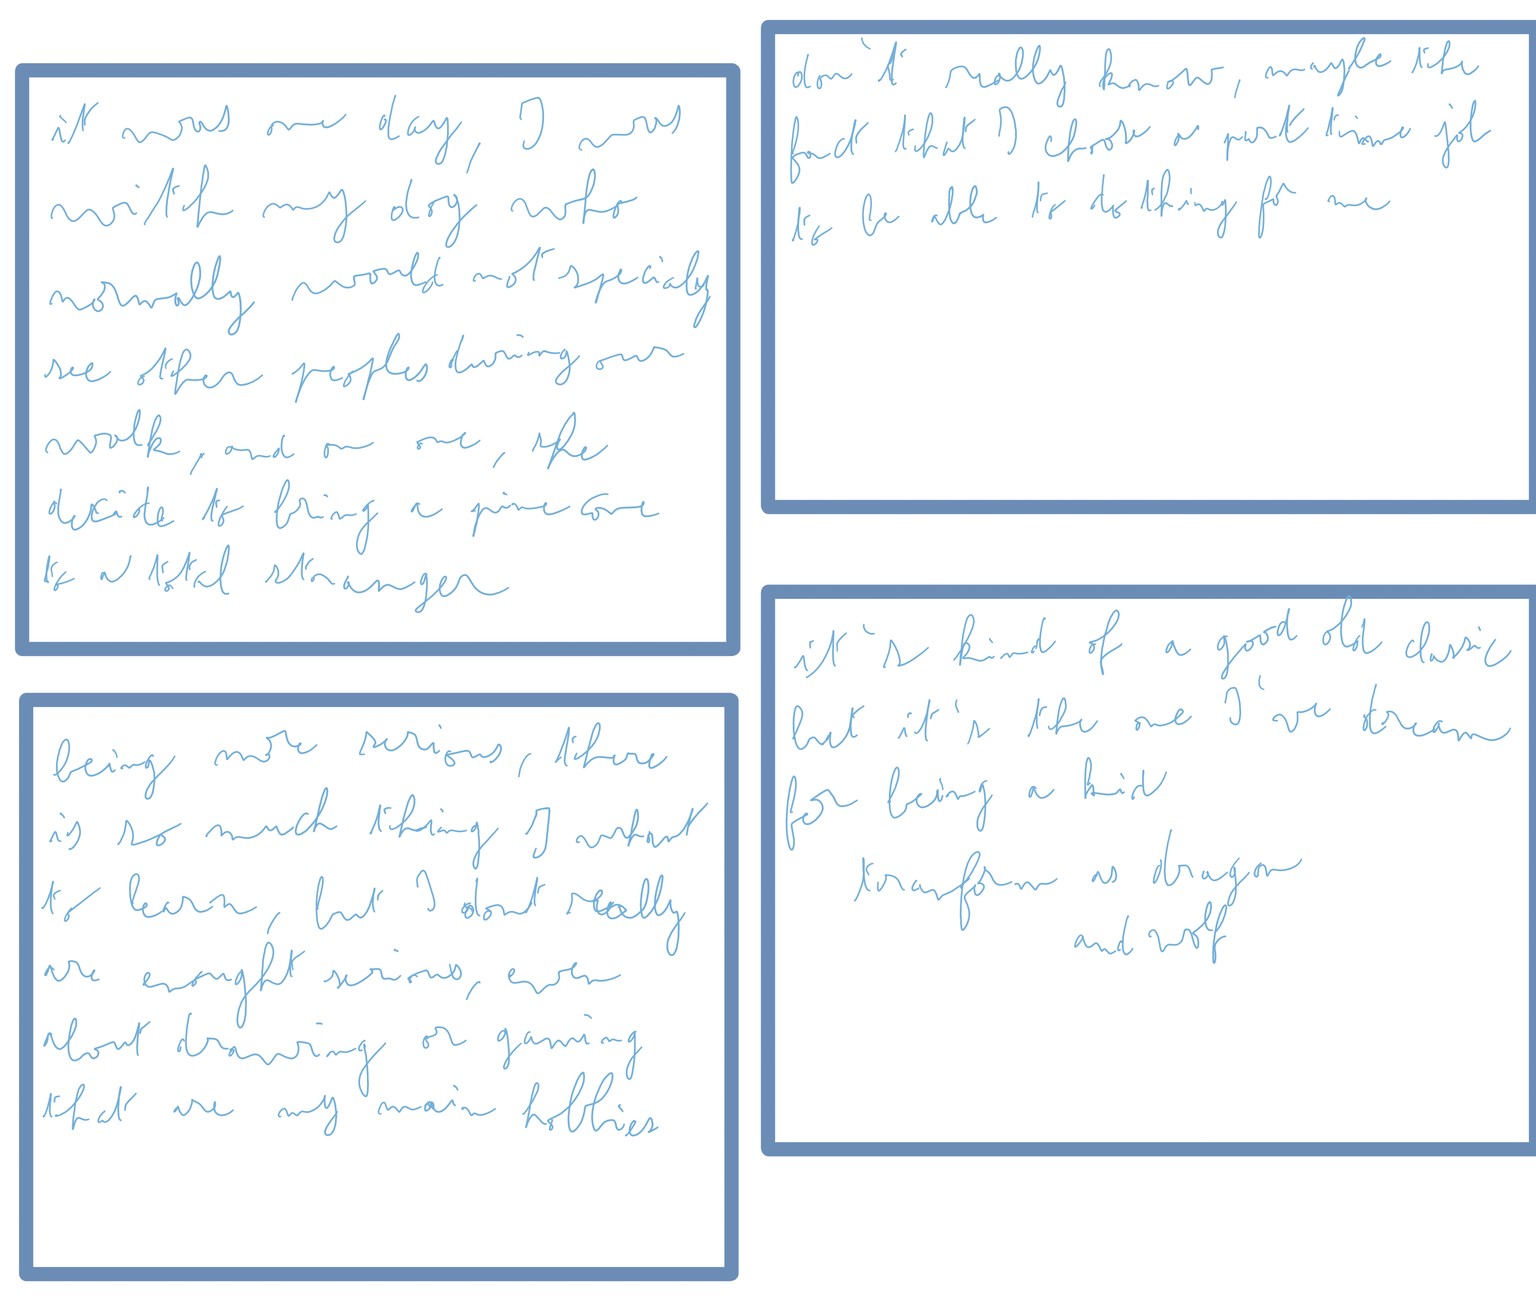 it was one day, I was
with my dog who
normally would not specialy
see other peoples during our
walk, and on one, she
decide to bring a pine cone
to a total stranger
being more serious, there
is so much thing I whant
to learn, but I dont really
are enought serious, even
about drawing or gaming
that are my main hobbies
don't really know, maybe the
fact that I choose a part time job
to be able to do thing for me
it's kind of a good old classic
but it's the one I've dream
for being a kid
tranform as dragon
and wolf